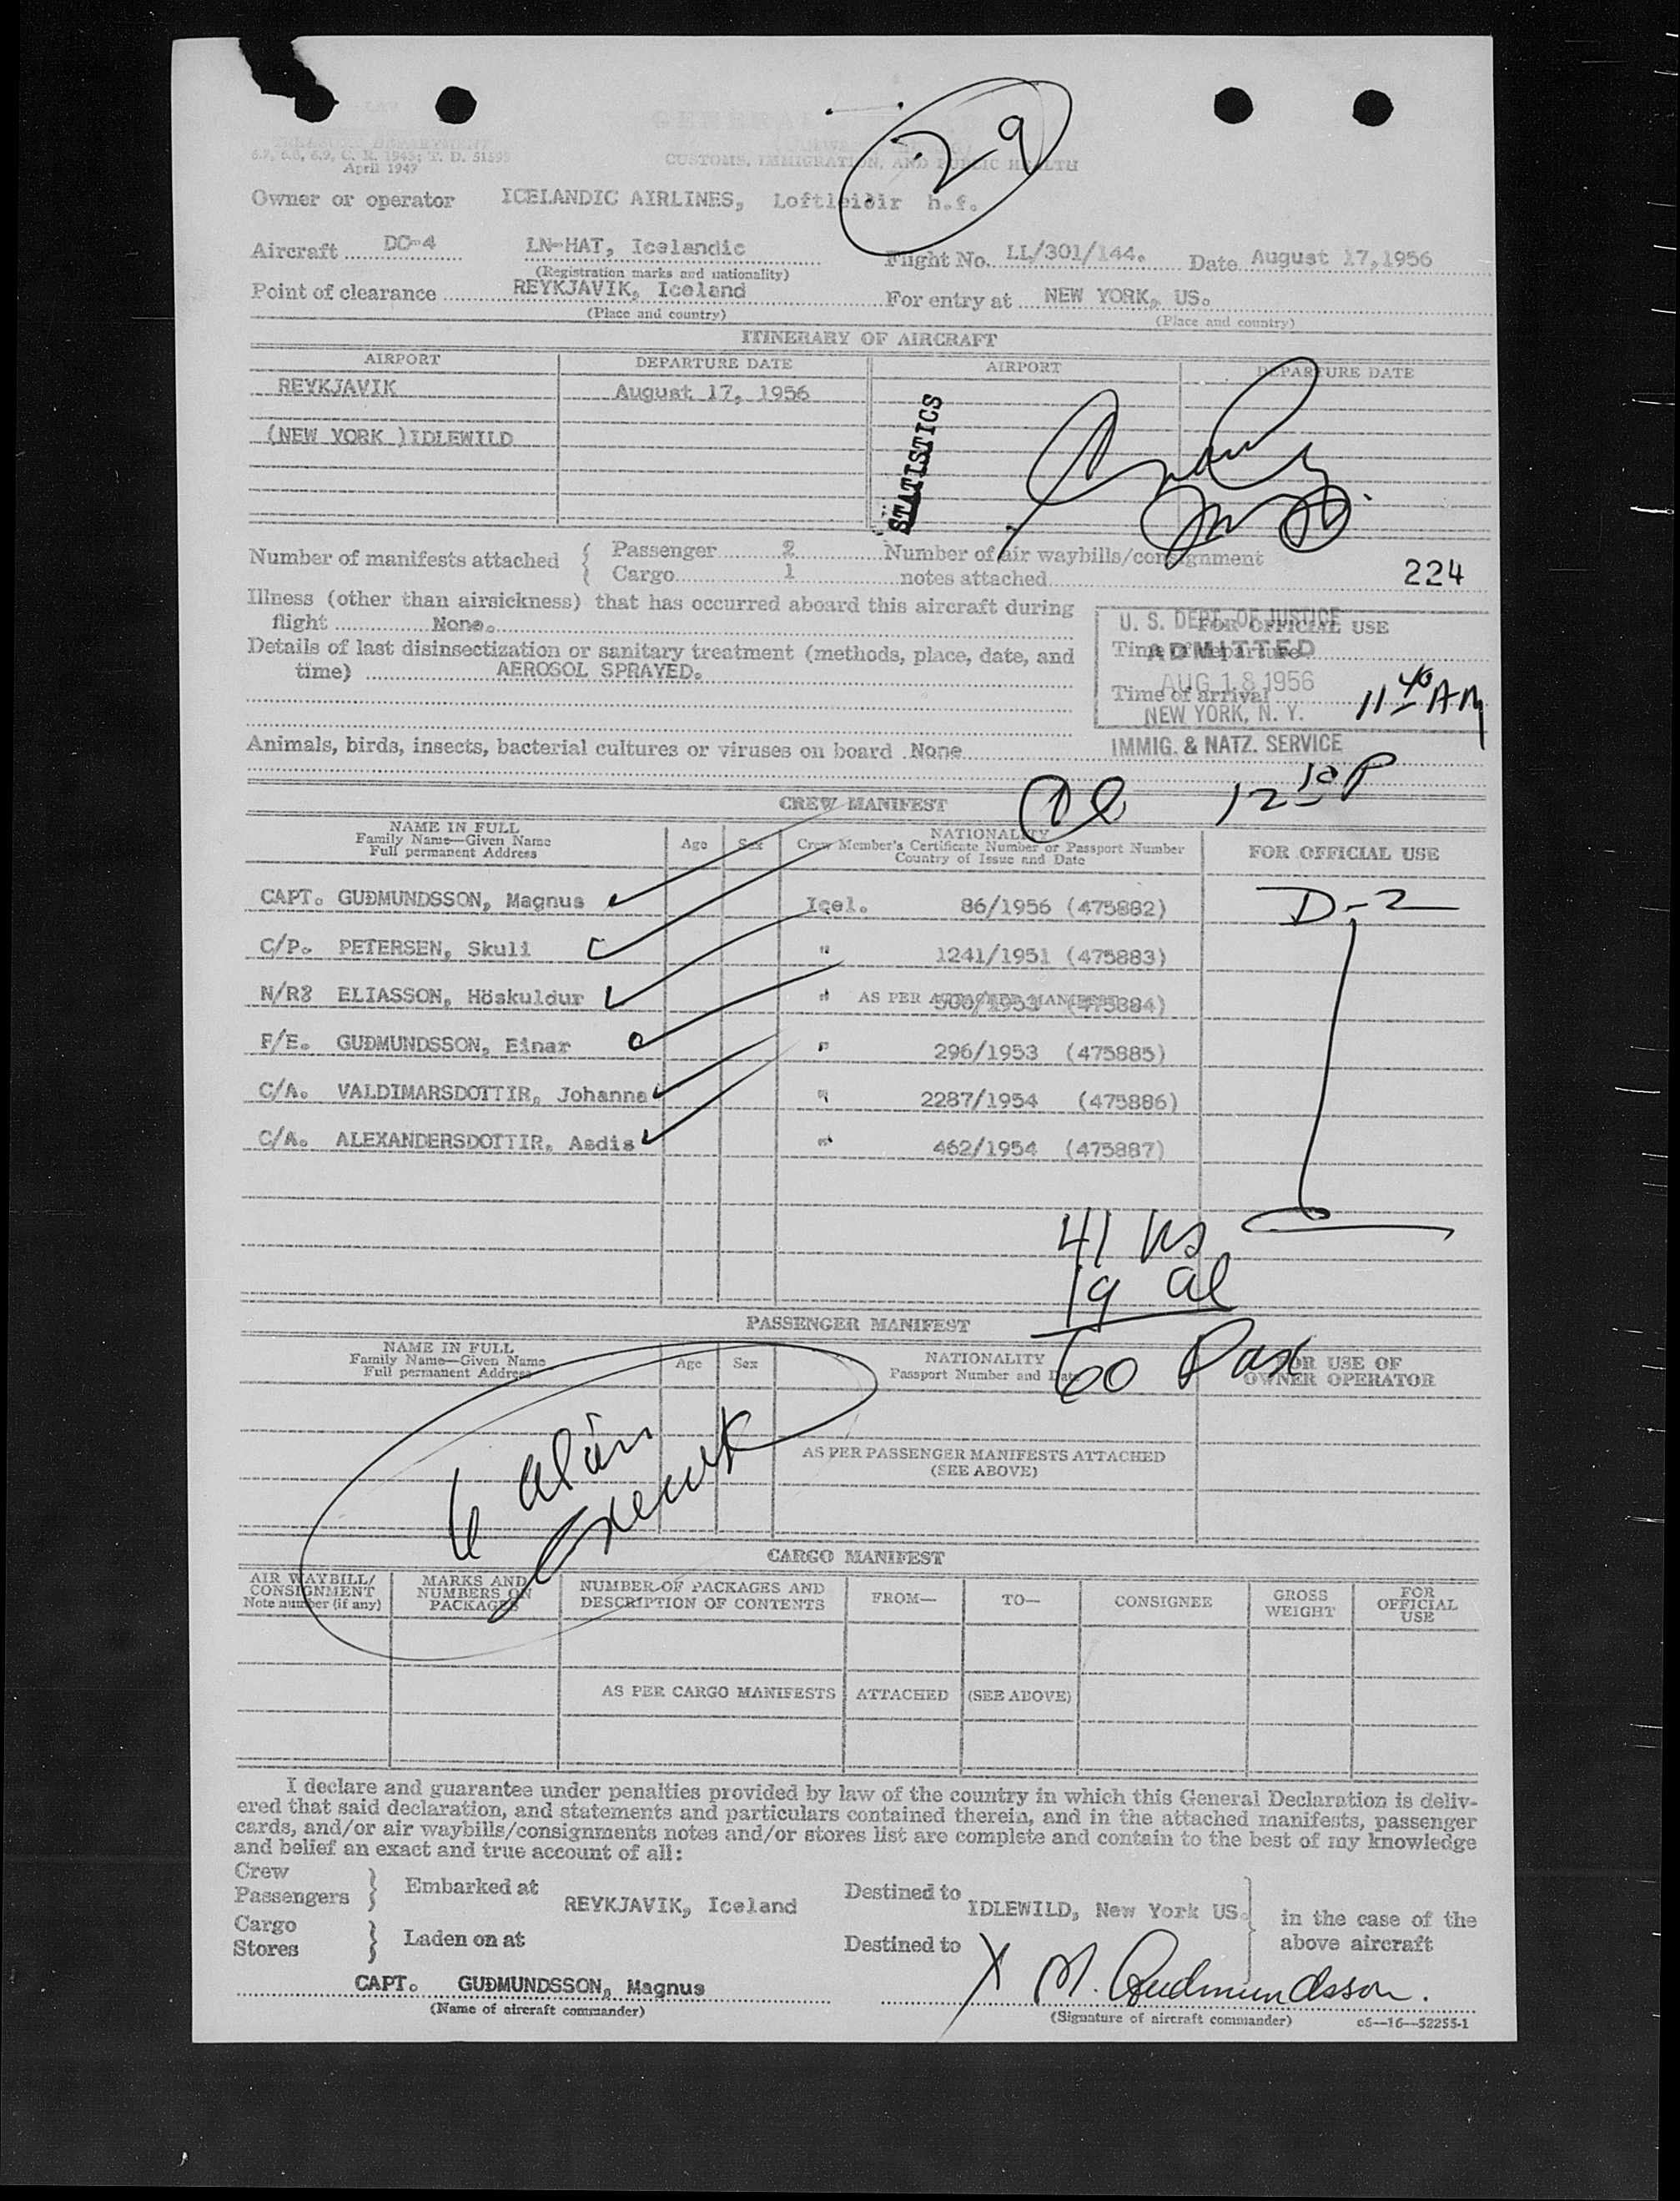 29
TREASURY DEPARTMENT
6.7, 6.8, 6.9, C. R. 1943; T. D. 51595
April 1947
GENERAL
CUSTOMS, IMMIGRATION, AND PUBLIC HEALTH
Owner or operator ICELANDIC AIRLINES, Loftleidir h.f.
Aircraft DC-4 LN-HAT, Icelandic Flight No. LL/301/144. Date August 17, 1956
(Registration marks and nationality)
Point of clearance REYKJAVIK, Iceland For entry at NEW YORK, US.
(Place and country) (Place and country)
ITINERARY OF AIRCRAFT
AIRPORT DEPARTURE DATE AIRPORT DEPARTURE DATE
REYKJAVIK August 17, 1956
(NEW YORK )IDLEWILD
STATISTICS
Number of manifests attached { Passenger 2 Number of air waybills/consignment
Cargo 1 notes attached
224
Illness (other than airsickness) that has occurred aboard this aircraft during
flight None.
Details of last disinsectization or sanitary treatment (methods, place, date, and
time) AEROSOL SPRAYED.
FOR OFFICIAL USE
Time of departure
Time of arrival 11 40 AM
U. S. DEPT. OF JUSTICE
ADMITTED
AUG 18 1956
NEW YORK, N. Y.
IMMIG. & NATZ. SERVICE
Animals, birds, insects, bacterial cultures or viruses on board None
12 10 P
CREW MANIFEST
NAME IN FULL
Family Name—Given Name
Full permanent Address
Age Sex
NATIONALITY
Crew Member's Certificate Number or Passport Number
Country of Issue and Date
FOR OFFICIAL USE
CAPT. GUÐMUNDSSON, Magnus Icel. 86/1956 (475882) D-2
C/P. PETERSEN, Skuli " 1241/1951 (475883)
N/R: ELIASSON, Höskuldur " 500/1953 (475884)
AS PER ATTACHED MANIFEST
F/E. GUÐMUNDSSON, Einar " 296/1953 (475885)
C/A. VALDIMARSDOTTIR, Johanna " 2287/1954 (475886)
C/A. ALEXANDERSDOTTIR, Asdis " 462/1954 (475887)
41 US
19 al
60 Pax
PASSENGER MANIFEST
NAME IN FULL
Family Name—Given Name
Full permanent Address
Age Sex
NATIONALITY
Passport Number and Date
FOR USE OF
OWNER OPERATOR
6 alien
crew
AS PER PASSENGER MANIFESTS ATTACHED
(SEE ABOVE)
CARGO MANIFEST
AIR WAYBILL/
CONSIGNMENT
Note number (if any)
MARKS AND
NUMBERS ON
PACKAGES
NUMBER OF PACKAGES AND
DESCRIPTION OF CONTENTS
FROM— TO— CONSIGNEE
GROSS
WEIGHT
FOR
OFFICIAL
USE
AS PER CARGO MANIFESTS ATTACHED (SEE ABOVE)
I declare and guarantee under penalties provided by law of the country in which this General Declaration is deliv-
ered that said declaration, and statements and particulars contained therein, and in the attached manifests, passenger
cards, and/or air waybills/consignments notes and/or stores list are complete and contain to the best of my knowledge
and belief an exact and true account of all:
Crew
Passengers } Embarked at REYKJAVIK, Iceland Destined to IDLEWILD, New York US.
Cargo
Stores } Laden on at Destined to
in the case of the
above aircraft
CAPT. GUÐMUNDSSON, Magnus X M. Gudmundsson.
(Name of aircraft commander) (Signature of aircraft commander) c6—16—52255-1